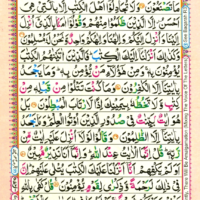 مَا تَصْنَعُوْنَ وَلَا تُجَادِلُوْۤا اَهْلَ الْكِتٰبِ اِلَّا بِالَّتِيْ هِيَ
اَحْسَنُ اِلَّا الَّذِيْنَ ظَلَمُوْا مِنْهُمْ وَقُوْلُوْۤا اٰمَنَّا بِالَّذِيْۤ
اُنْزِلَ اِلَيْنَا وَاُنْزِلَ اِلَيْكُمْ وَاِلٰهُنَا وَاِلٰهُكُمْ وَاحِدٌ وَّنَحْنُ لَهٗ مُسْلِمُوْنَ
وَكَذٰلِكَ اَنْزَلْنَاۤ اِلَيْكَ الْكِتٰبَ فَالَّذِيْنَ اٰتَيْنٰهُمُ الْكِتٰبَ
يُؤْمِنُوْنَ بِهٖ وَمِنْ هٰۤؤُلَآءِ مَنْ يُّؤْمِنُ بِهٖ وَمَا يَجْحَدُ
بِاٰيٰتِنَاۤ اِلَّا الْكٰفِرُوْنَ وَمَا كُنْتَ تَتْلُوْا مِنْ قَبْلِهٖ مِنْ
كِتٰبٍ وَّلَا تَخُطُّهٗ بِيَمِيْنِكَ اِذًا لَّارْتَابَ الْمُبْطِلُوْنَ بَلْ
هُوَ اٰيٰتٌۢ بَيِّنٰتٌ فِيْ صُدُوْرِ الَّذِيْنَ اُوْتُوا الْعِلْمَ وَمَا يَجْحَدُ
بِاٰيٰتِنَاۤ اِلَّا الظّٰلِمُوْنَ وَقَالُوْا لَوْلَاۤ اُنْزِلَ عَلَيْهِ اٰيٰتٌ
مِّنْ رَّبِّهٖ قُلْ اِنَّمَا الْاٰيٰتُ عِنْدَ اللّٰهِ وَاِنَّمَاۤ اَنَا نَذِيْرٌ مُّبِيْنٌ
اَوَلَمْ يَكْفِهِمْ اَنَّاۤ اَنْزَلْنَا عَلَيْكَ الْكِتٰبَ يُتْلٰى عَلَيْهِمْ اِنَّ
فِيْ ذٰلِكَ لَرَحْمَةً وَّذِكْرٰى لِقَوْمٍ يُّؤْمِنُوْنَ قُلْ كَفٰى بِاللّٰهِ